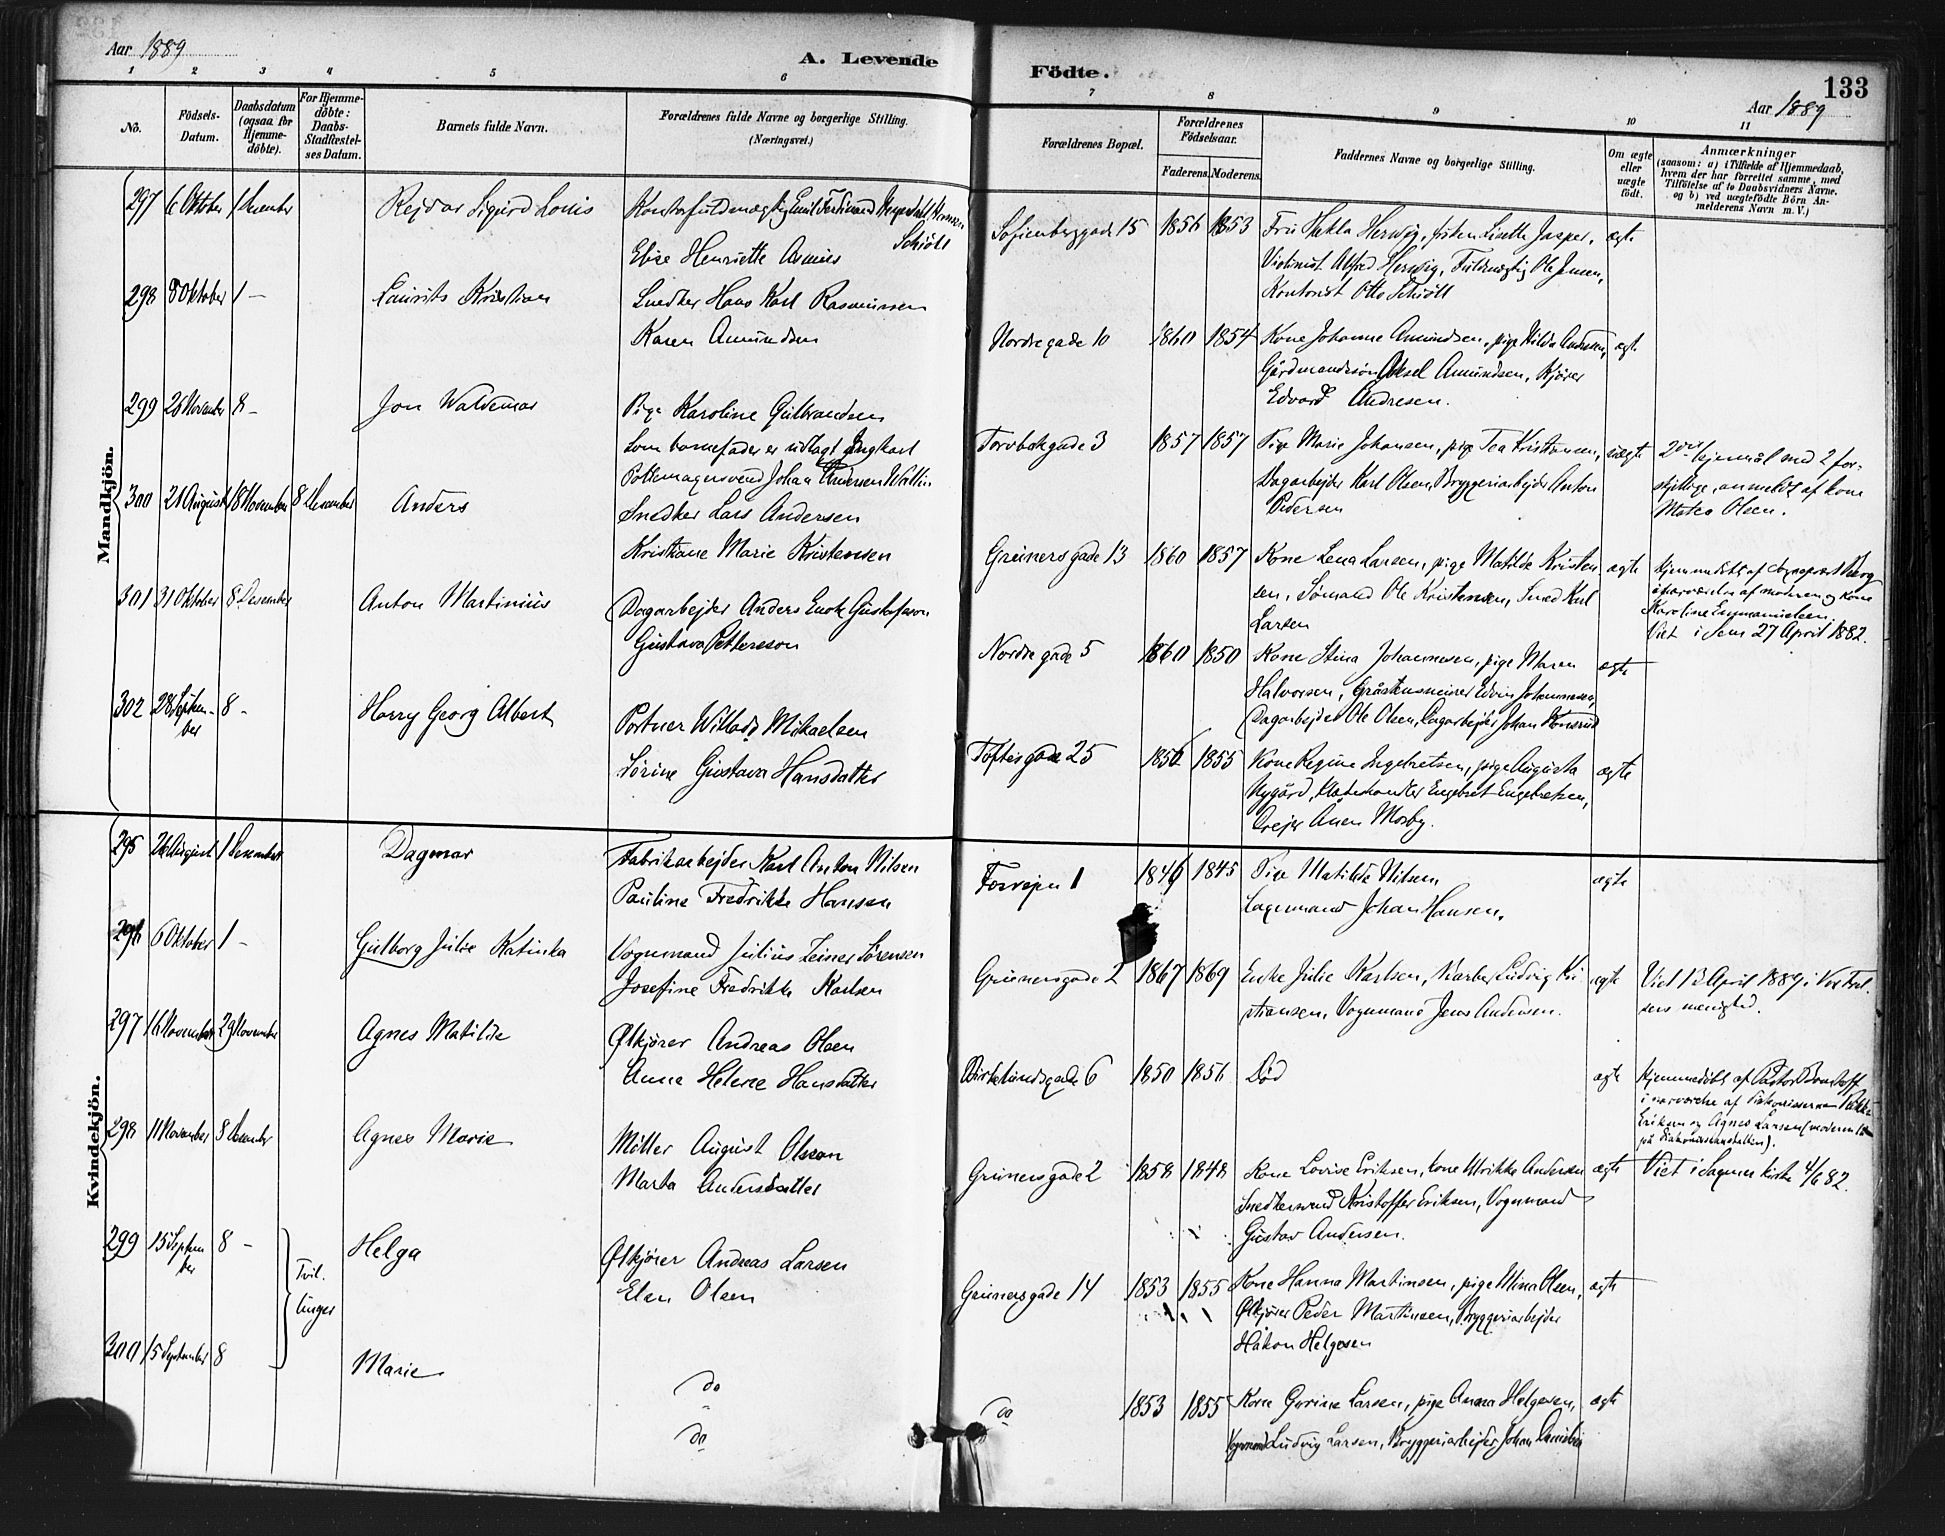 Aar 1889
A. Levende Födte.
133
Aar 1889
1 2 3 4 5 6 7 8 9 10 11
No.
Födsels-Datum.
Daabsdatum (ogsaa for Hjemmedöbte).
For Hjemmedöbte: Daabs-Stadfæstelses Datum.
Barnets fulde Navn.
Forældrenes fulde Navne og borgerlige Stilling.
(Næringsvei.)
Forældrenes Bopæl.
Forældrenes Födselsaar.
Faderens. Moderens.
Faddernes Navne og borgerlige Stilling.
Om ægte eller uægte födt.
Anmærkninger
(saasom: a) i Tilfælde af Hjemmedaab, hvem der har forrettet samme, med Tilföielse af to Daabsvidners Navne, og b) ved uægtefödte Börn Anmelderens Navn m. V.)
Mandkjön.
297 6 Oktober 1 Desember Rejdar Sigurd Louis
Schiøll
Elise Henriette Asmus
Sofienberggade 15 1856 1853 Fru Hekla Herwig, frøken Lisette Jasper, ægte
Violinist Alfred Herwig, Fuldmægtig Ole Jensen,
Kontorist Otto Schiøll
298 8 Oktober 1 – Laurits Kristian Snedker Hans Karl Rasmussen
Karen Amundsen
Nordregade 10 1860 1854 Kone Johanne Amundsen, pige Hilda Andresen, ægte
Gårdmandssøn Aksel Amundsen, Kjører
Edvard Andresen.
299 26 November 8 – Jon Waldemar Pige Karoline Gulbrandsen
Som barnefader er udlagt Ungkarl
Pottemagersvend Johan Andersen Wallin
Torvbakgade 3 1857 1857 Pige Marie Johansen, pige Tea Kristiansen, uægte
Dagarbejder Karl Olsen, Bryggeriarbejder Anton
Pedersen
2det lejemål med 2 for-
skjellige, anmeldt af kone
Mateo Olsen.
300 21 August 18 November 8 Desember Anders Snedker Lars Andersen
Kristiane Marie Kristensen
Grünersgade 13 1860 1857 Kone Lena Larsen, pige Matilde Kristen- ægte
sen, Sømand Ole Kristensen, Smed Karl
Larsen
Hjemmedøbt af Sogneprest Berg
i nærværelse af moderen og kone
Karoline Emmanuelsen.
Viet i Sem 27 April 1882.
301 31 Oktober 8 Desember Anton Martinius Dagarbejder Anders Enok Gustafsson
Gustava Pettersson
Nordregade 5 1860 1850 Kone Stina Johannesen, pige Maren ægte
Halvorsen, Gråstensmurer Edvin Johannesen,
Dagarbejder Ole Olsen, Dagarbejder Johan
302 28 Septem- 8 – Harry Georg Albert Portner Willads Mikaelsen
ber
Sørine Gustava Hansdatter
Toftesgade 25 1856 1855 Kone Regine Ingebretsen, pige Augusta ægte
Nygård, Engebret Engebretsen,
Drejer Anen Mosby.
Kvindekjön.
295 26 August 1 Desember Dagmar Fabrikarbejder Karl Anton Nilsen
Pauline Fredrikke Hansen
Torvejen 1 1846 1845 Pige Matilde Nilsen ægte
Lagermand Johan Hansen.
296 6 Oktober 1 – Gulborg Julie Katinka Vognmand Julius Zeiner Sørensen
Josefine Fredrikke Karlsen
Grünersgade 2 1867 1869 Enke Julie Karlsen, Ludvig Kri- ægte
stiansen, Vognmand Jens Andersen.
Viet 13 April 1889 i Vor Frel-
sers menighed.
297 16 November 29 November Agnes Matilde Ølkjører Andreas Olsen
Anne Helene Hansdatter
Birkelundsgade 6 1850 1856 Død ægte
Hjemmedøbt af Pastor
i nærværelse af
Eriksen og Agnes Larsen (moderen
på diakonisseanstalten).
298 11 November 8 Desember Agnes Marie Møller August Olsson
Marta Andersdatter
Grünersgade 2 1858 1848 Kone Lovise Eriksen, kone Ulrikke Andersen ægte
Snedkersvend Kristoffer Eriksen, Vognmand
Gustav Andersen.
Viet i Sagene kirke 4/6 82.
299 15 Septem- 8 – Helga Ølkjører Andreas Larsen
ber
Tvil.
linger
Elen Olsen
Grünersgade 14 1853 1855 Kone Hanna Martinsen, pige Mina Olsen, ægte
Ølkjører Peder Martinsen, Bryggeriarbejder
Håkon Helgesen
300 15 September 8 Marie do
do
do 1853 1855 Kone Gurine Larsen, pige Anna Helgesen, ægte
Vognmand Ludvig Larsen, Bryggeriarbejder Johan